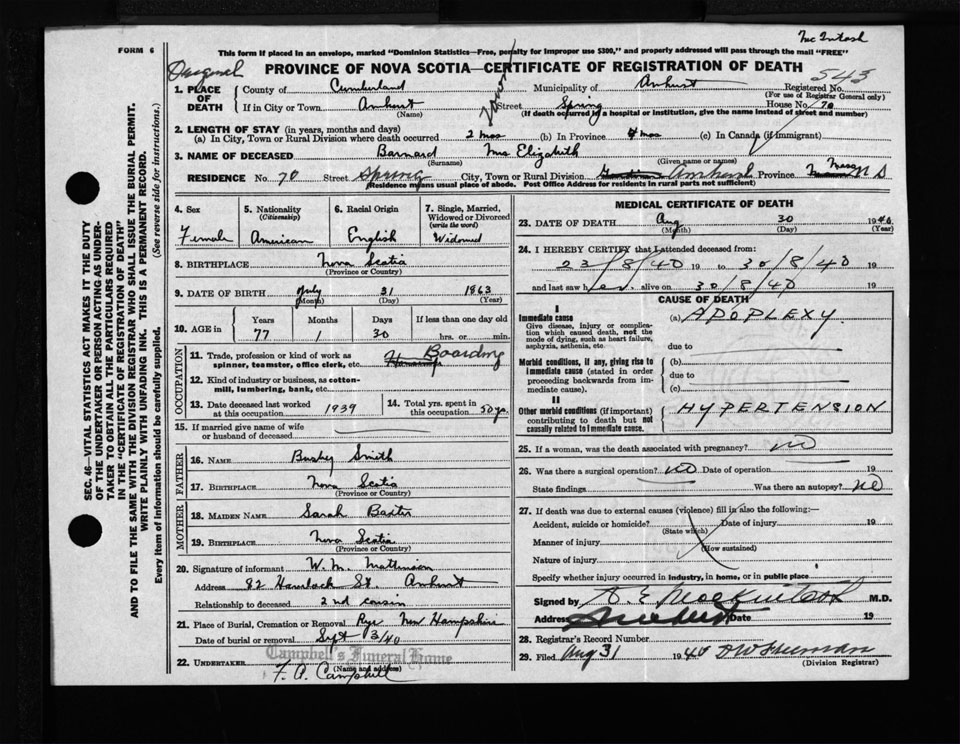 Mc Intosh
FORM 6
This form if placed in an envelope, marked "Dominion Statistics—Free, penalty for improper use $300," and properly addressed will pass through the mail "FREE"
Original
PROVINCE OF NOVA SCOTIA—CERTIFICATE OF REGISTRATION OF DEATH
543
1. PLACE OF DEATH
County of Cumberland Municipality of Amherst Registered No.
(For use of Registrar General only)
If in City or Town Amherst Street Spring House No. 70
(Name) (If death occurred in a hospital or institution, give the name instead of street and number)
2. LENGTH OF STAY (in years, months and days)
(a) In City, Town or Rural Division where death occurred 2 mos (b) In Province 4 mos (c) In Canada (if immigrant)
3. NAME OF DECEASED Barnard Mrs Elizabeth
(Surname) (Given name or names)
RESIDENCE No. 70 Street Spring City, Town or Rural Division Amherst Province Mass N S
(Residence means usual place of abode. Post Office Address for residents in rural parts not sufficient)
4. Sex
Female
5. Nationality
(Citizenship)
American
6. Racial Origin
English
7. Single, Married, Widowed or Divorced
(write the word)
Widowed
8. BIRTHPLACE Nova Scotia
(Province or Country)
9. DATE OF BIRTH July 31 1863
(Month) (Day) (Year)
10. AGE in
Years Months Days If less than one day old
77 1 30 hrs. or min.
OCCUPATION
11. Trade, profession or kind of work as Boarding
spinner, teamster, office clerk, etc.
12. Kind of industry or business, as cotton-
mill, lumbering, bank, etc.
13. Date deceased last worked
at this occupation 1939
14. Total yrs. spent in
this occupation 50 yrs.
15. If married give name of wife
or husband of deceased
FATHER
16. NAME Busby Smith
17. BIRTHPLACE Nova Scotia
(Province or Country)
MOTHER
18. MAIDEN NAME Sarah Baxter
19. BIRTHPLACE Nova Scotia
(Province or Country)
20. Signature of informant W. M. Mattinson
Address 82 Havelock St. Amherst
Relationship to deceased 2nd cousin
21. Place of Burial, Cremation or Removal Rye New Hampshire
Date of burial or removal Sept 3/40
Campbell's Funeral Home
22. UNDERTAKER F. A. Campbell
(Name and address)
MEDICAL CERTIFICATE OF DEATH
23. DATE OF DEATH Aug 30 1940
(Month) (Day) (Year)
24. I HEREBY CERTIFY that I attended deceased from:
23/8/40 19 to 30/8/40 19
and last saw her alive on 30/8/40 19
CAUSE OF DEATH
I
Immediate cause (a) APOPLEXY
Give disease, injury or complica-
tion which caused death, not the
mode of dying, such as heart failure,
asphyxia, asthenia, etc.
due to
Morbid conditions, if any, giving rise to
immediate cause (stated in order
proceeding backwards from im-
mediate cause).
(b)
due to
(c)
II
Other morbid conditions (if important)
contributing to death but not
causally related to immediate cause.
HYPERTENSION
25. If a woman, was the death associated with pregnancy? no
26. Was there a surgical operation? no Date of operation 19
State findings Was there an autopsy? no
27. If death was due to external causes (violence) fill in also the following:—
Accident, suicide or homicide? Date of injury 19
(State which)
Manner of injury
(How sustained)
Nature of injury
Specify whether injury occurred in industry, in home, or in public place
Signed by M.D.
Address Amherst Date 19
28. Registrar's Record Number
29. Filed Aug 31 1940
(Division Registrar)
SEC. 46—VITAL STATISTICS ACT MAKES IT THE DUTY
OF THE UNDERTAKER OR PERSON ACTING AS UNDER-
TAKER TO OBTAIN ALL THE PARTICULARS REQUIRED
IN THE "CERTIFICATE OF REGISTRATION OF DEATH"
AND TO FILE THE SAME WITH THE DIVISION REGISTRAR WHO SHALL ISSUE THE BURIAL PERMIT.
WRITE PLAINLY WITH UNFADING INK. THIS IS A PERMANENT RECORD.
Every item of information should be carefully supplied. (See reverse side for instructions.)